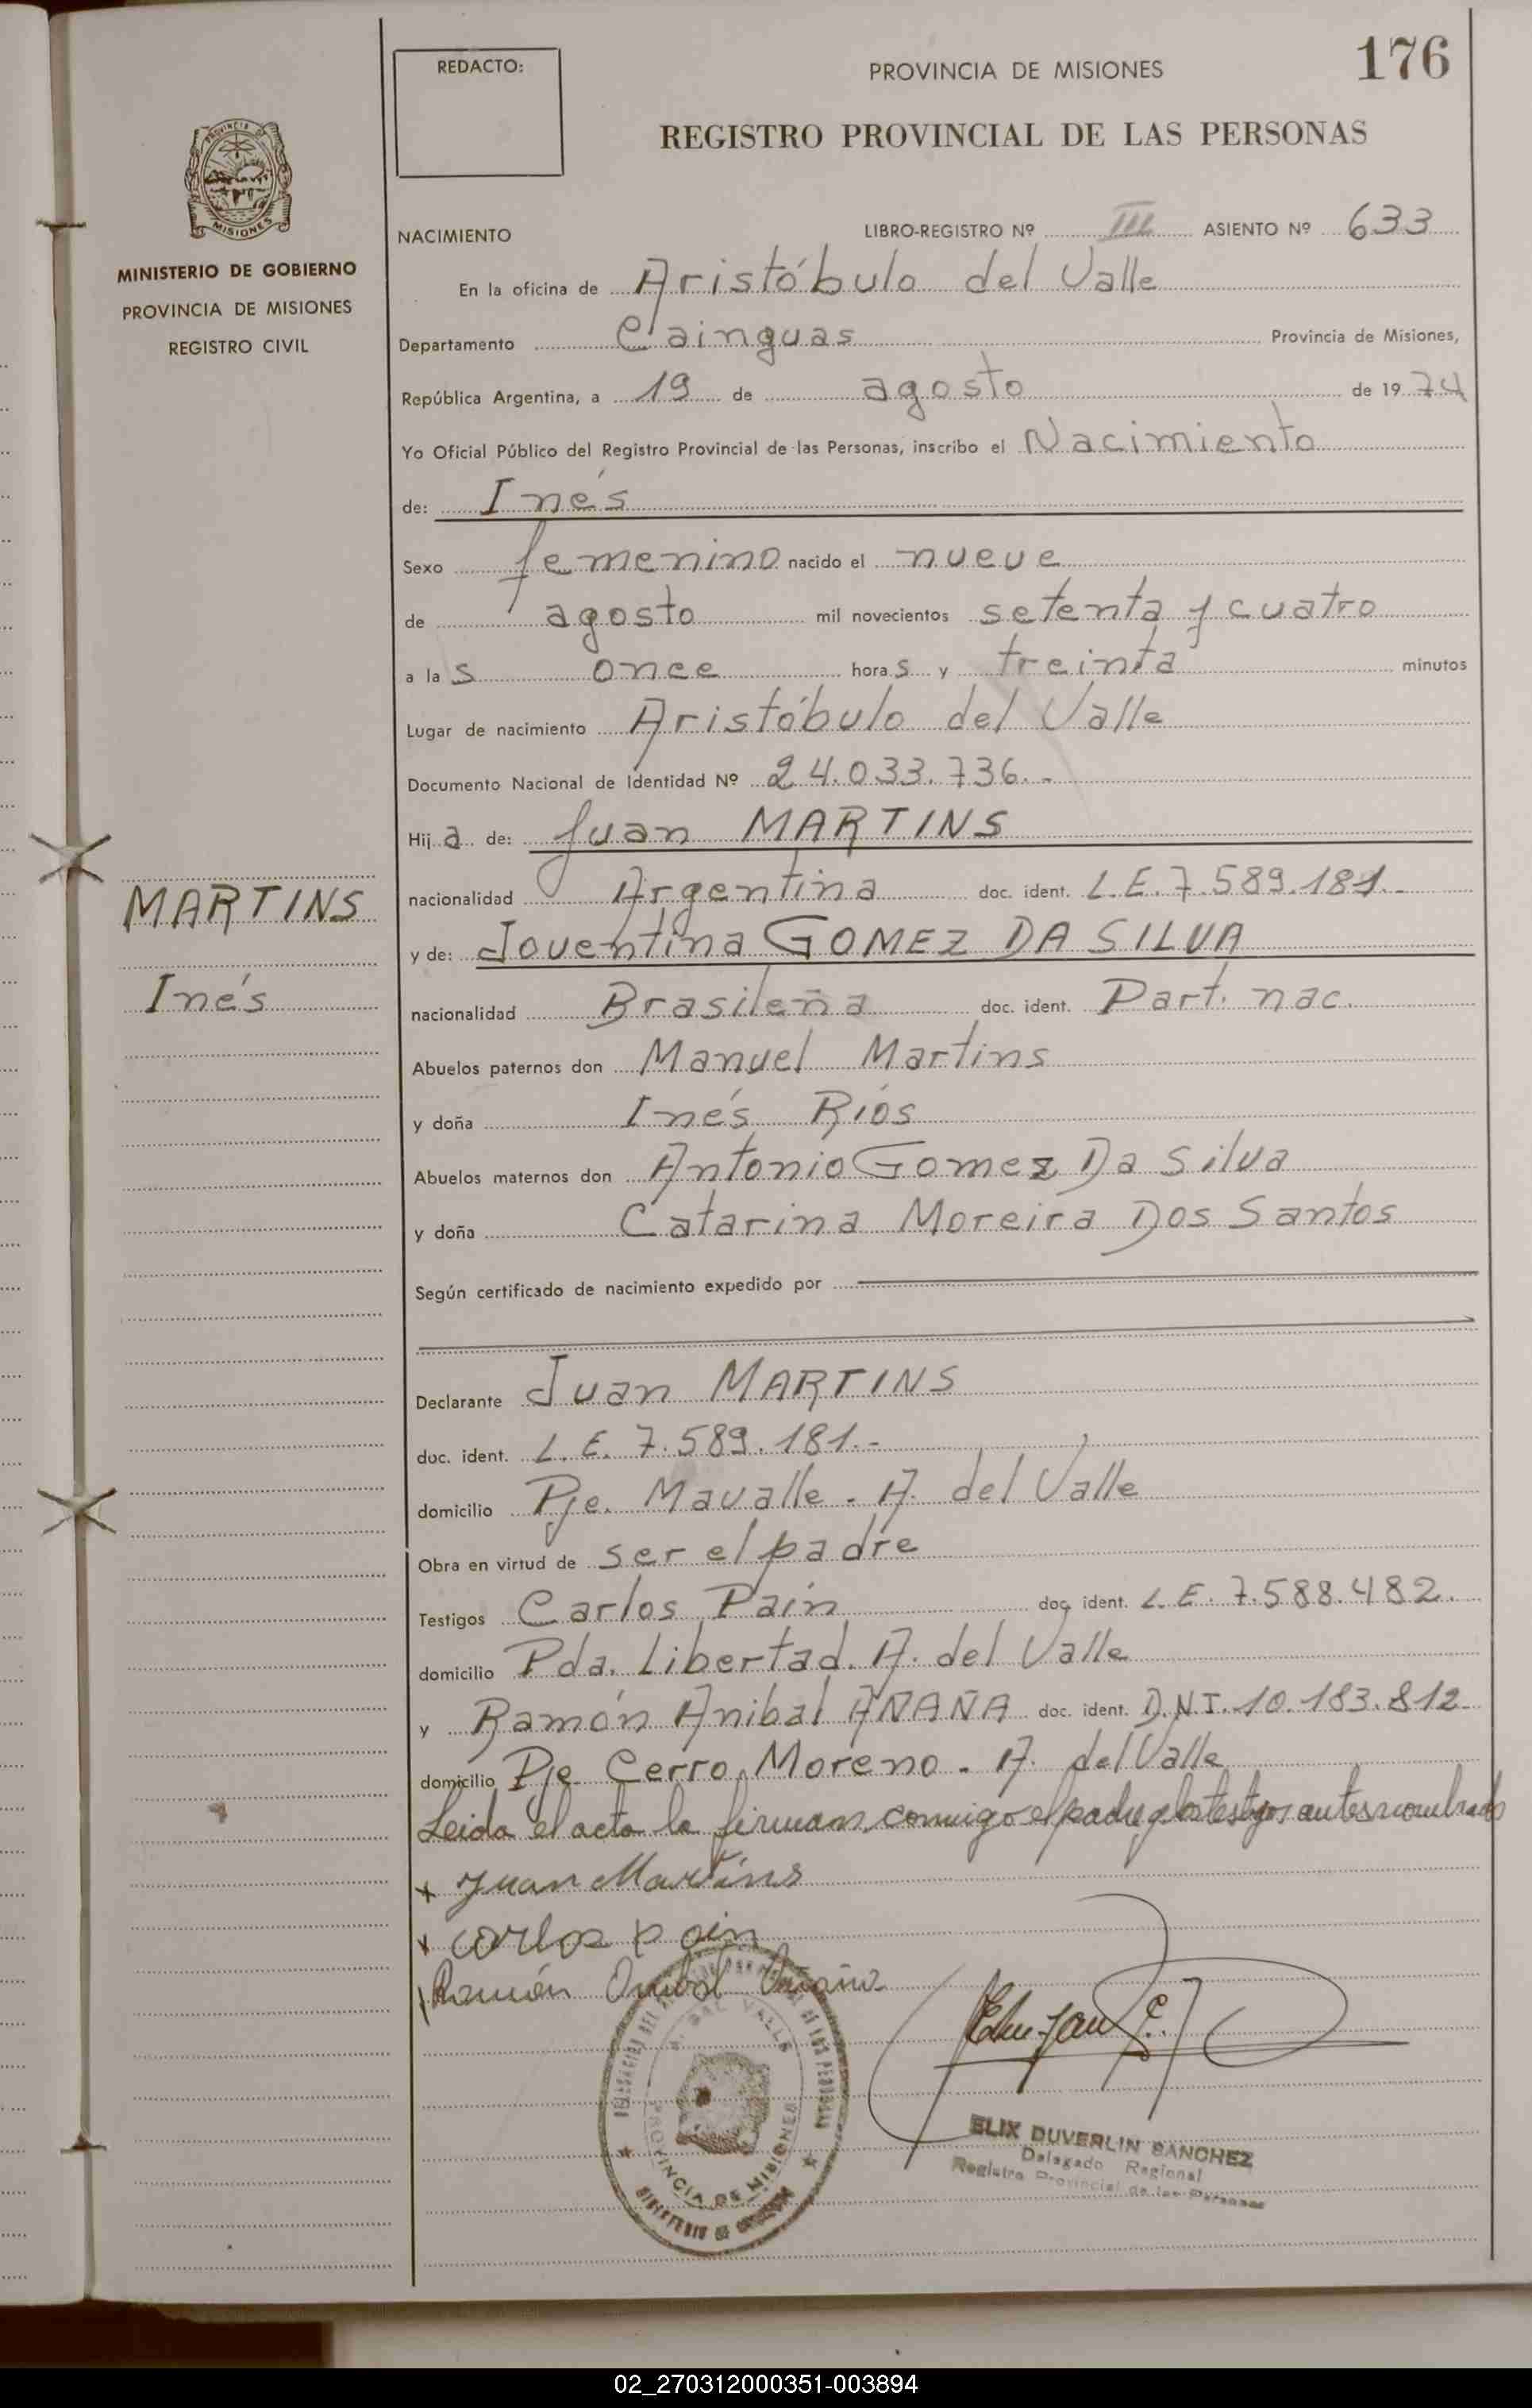 176
REDACTO:
PROVINCIA DE MISIONES
REGISTRO PROVINCIAL DE LAS PERSONAS
MISIONES
MINISTERIO DE GOBIERNO
PROVINCIA DE MISIONES
REGISTRO CIVIL
NACIMIENTO LIBRO-REGISTRO Nº III ASIENTO Nº 633
En la oficina de Aristóbulo del Valle
Departamento Cainguas Provincia de Misiones,
República Argentina, a 19 de agosto de 1974
Yo Oficial Público del Registro Provincial de las Personas, inscribo el Nacimiento
de: Inés
Sexo femenino nacido el nueve
de agosto mil novecientos setenta y cuatro
a las once horas y treinta minutos
Lugar de nacimiento Aristóbulo del Valle
Documento Nacional de Identidad Nº 24.033.736.-
Hija de: Juan MARTINS
nacionalidad Argentina doc. ident. L.E. 7.589.181.-
y de: Joventina GOMEZ DA SILVA
nacionalidad Brasileña doc. ident. Part. nac.
Abuelos paternos don Manuel Martins
y doña Inés Ríos
Abuelos maternos don Antonio Gomez Da Silva
y doña Catarina Moreira Dos Santos
Según certificado de nacimiento expedido por
MARTINS
Inés
Declarante Juan MARTINS
doc. ident. L.E. 7.589.181.-
domicilio Pje. Mavalle - A. del Valle
Obra en virtud de ser el padre
Testigos Carlos Pain doc. ident. L.E. 7.588.482.
domicilio Pda. Libertad. A. del Valle
y Ramón Anibal AÑAÑA doc. ident. D.N.I. 10.183.812
domicilio Pje Cerro Moreno - A. del Valle
Leida el acta la firman conmigo el padre y los testigos antes nombrados
x Juan Martins
x carlos pain
Ramón Anibal Añaña
A. DEL VALLE
PROVINCIA DE MISIONES
MINISTERIO DE GOBIERNO
ELIX DUVERLIN SANCHEZ
Delegado Regional
Registro Provincial de las Personas
02_270312000351-003894